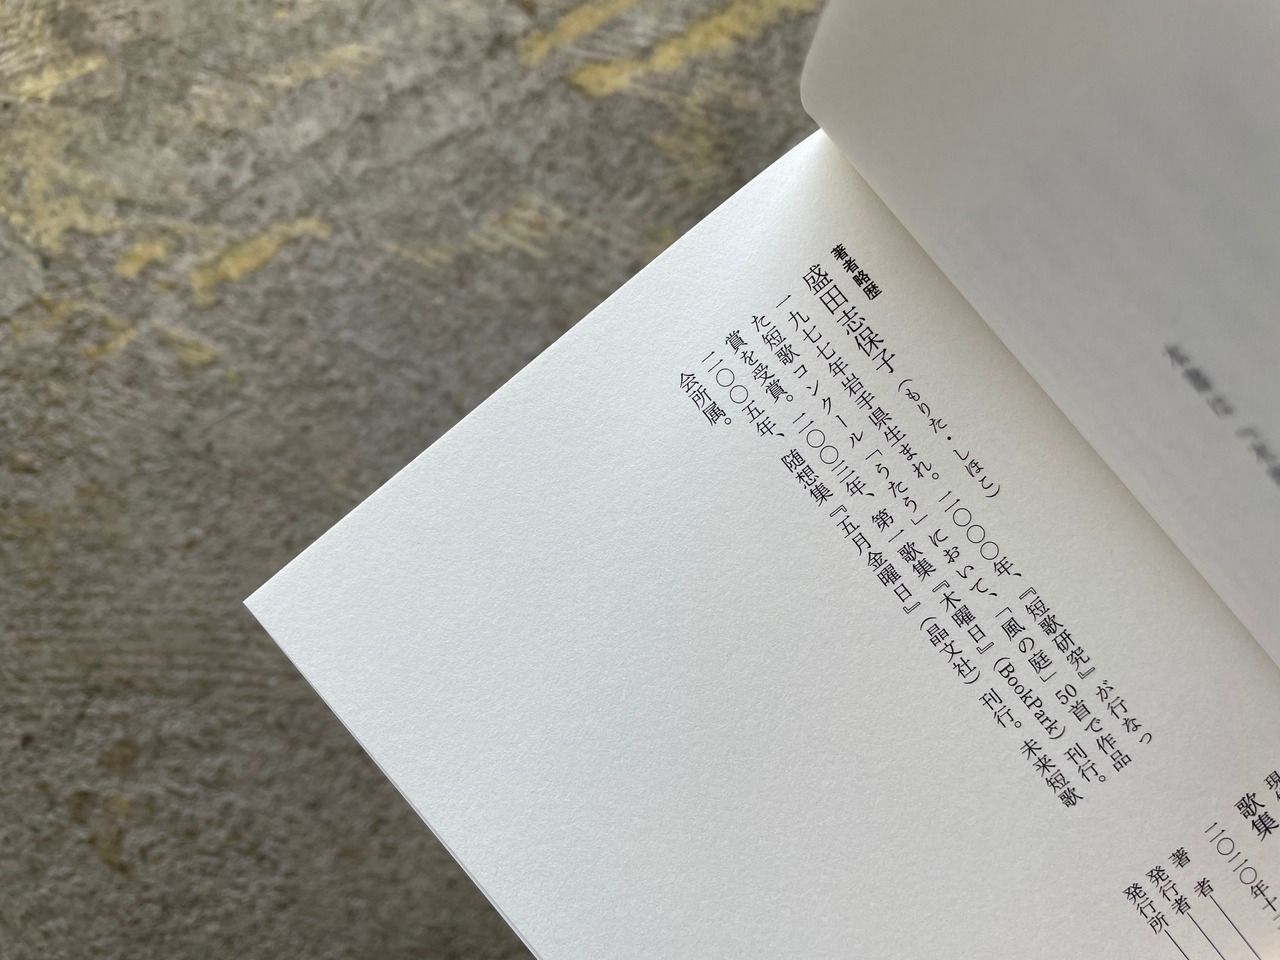 著者略歴
盛田志保子（もりた・しほこ）
一九七七年岩手県生まれ。二〇〇〇年、『短歌研究』が行なっ
た短歌コンクール「うたう」において、「風の庭」50首で作品
賞を受賞。二〇〇三年、第一歌集『木曜日』（BookPark）刊行。
二〇〇五年、随想集『五月金曜日』（晶文社）刊行。未来短歌
会所属。
歌集
二〇二〇年十
著　者
発行者
発行所